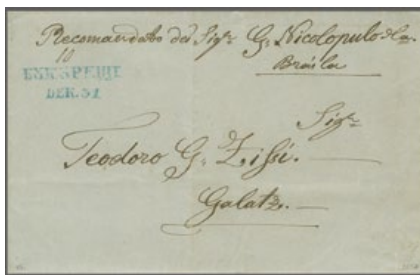 Recomandato dei Sigri G. Nicolopulo & Co.
10
Braila
DEK. 51
Sigr
Teodoro G. Zissi.
Galatz.